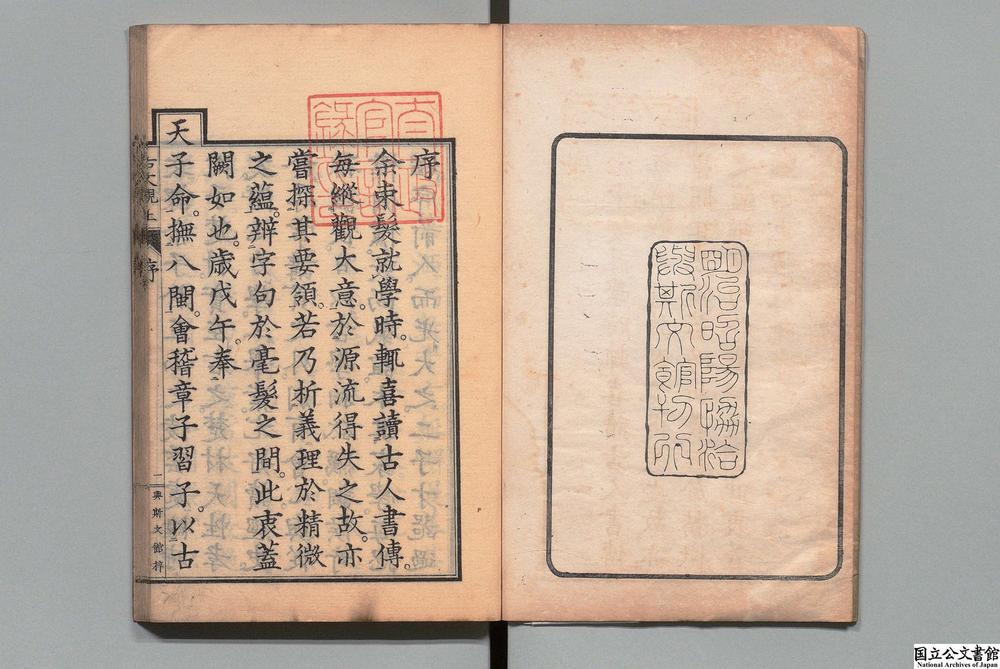 明治昭陽協洽
與斯文館刊行
太政官記錄印
序
余束髮就學時。輒喜讀古人書傳。
每縱觀大意。於源流得失之故。亦
嘗探其要領。若乃析義理於精微
之蘊。辯字句於毫髮之間。此衷蓋
闕如也。歲戊午。奉
天子命。撫八閩。會稽章子習子。以古
古文觀上
序
與斯文館梓
国立公文書館
National Archives of Japan